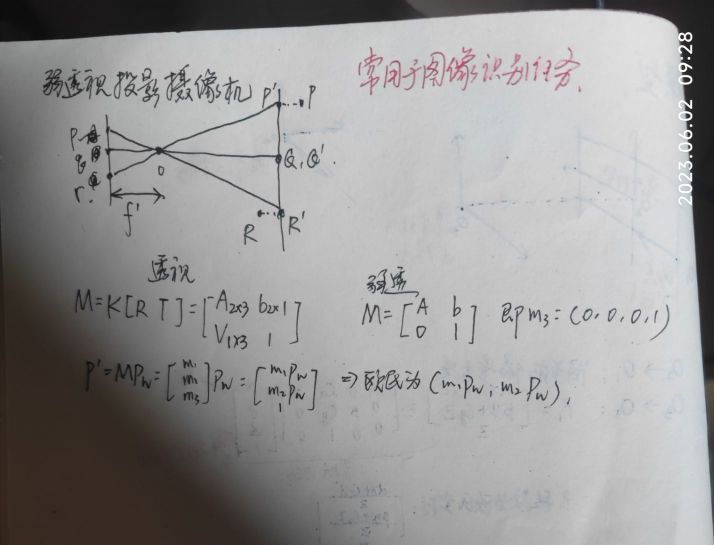 弱透视投影摄像机
常用于图像识别任务.
P' P
p
q
r
O
Q, Q'.
f'
R R'
透视
M=K[R T]=[A2x3 b2x1
V1x3 1]
弱透
M=[A b
0 1] 即 m3=(0,0,0,1)
P'=MPw=[m1
m2
m3]Pw=[m1Pw
m2Pw
1] ⇒欧氏为(m1Pw, m2Pw),
2023.06.02 09:28